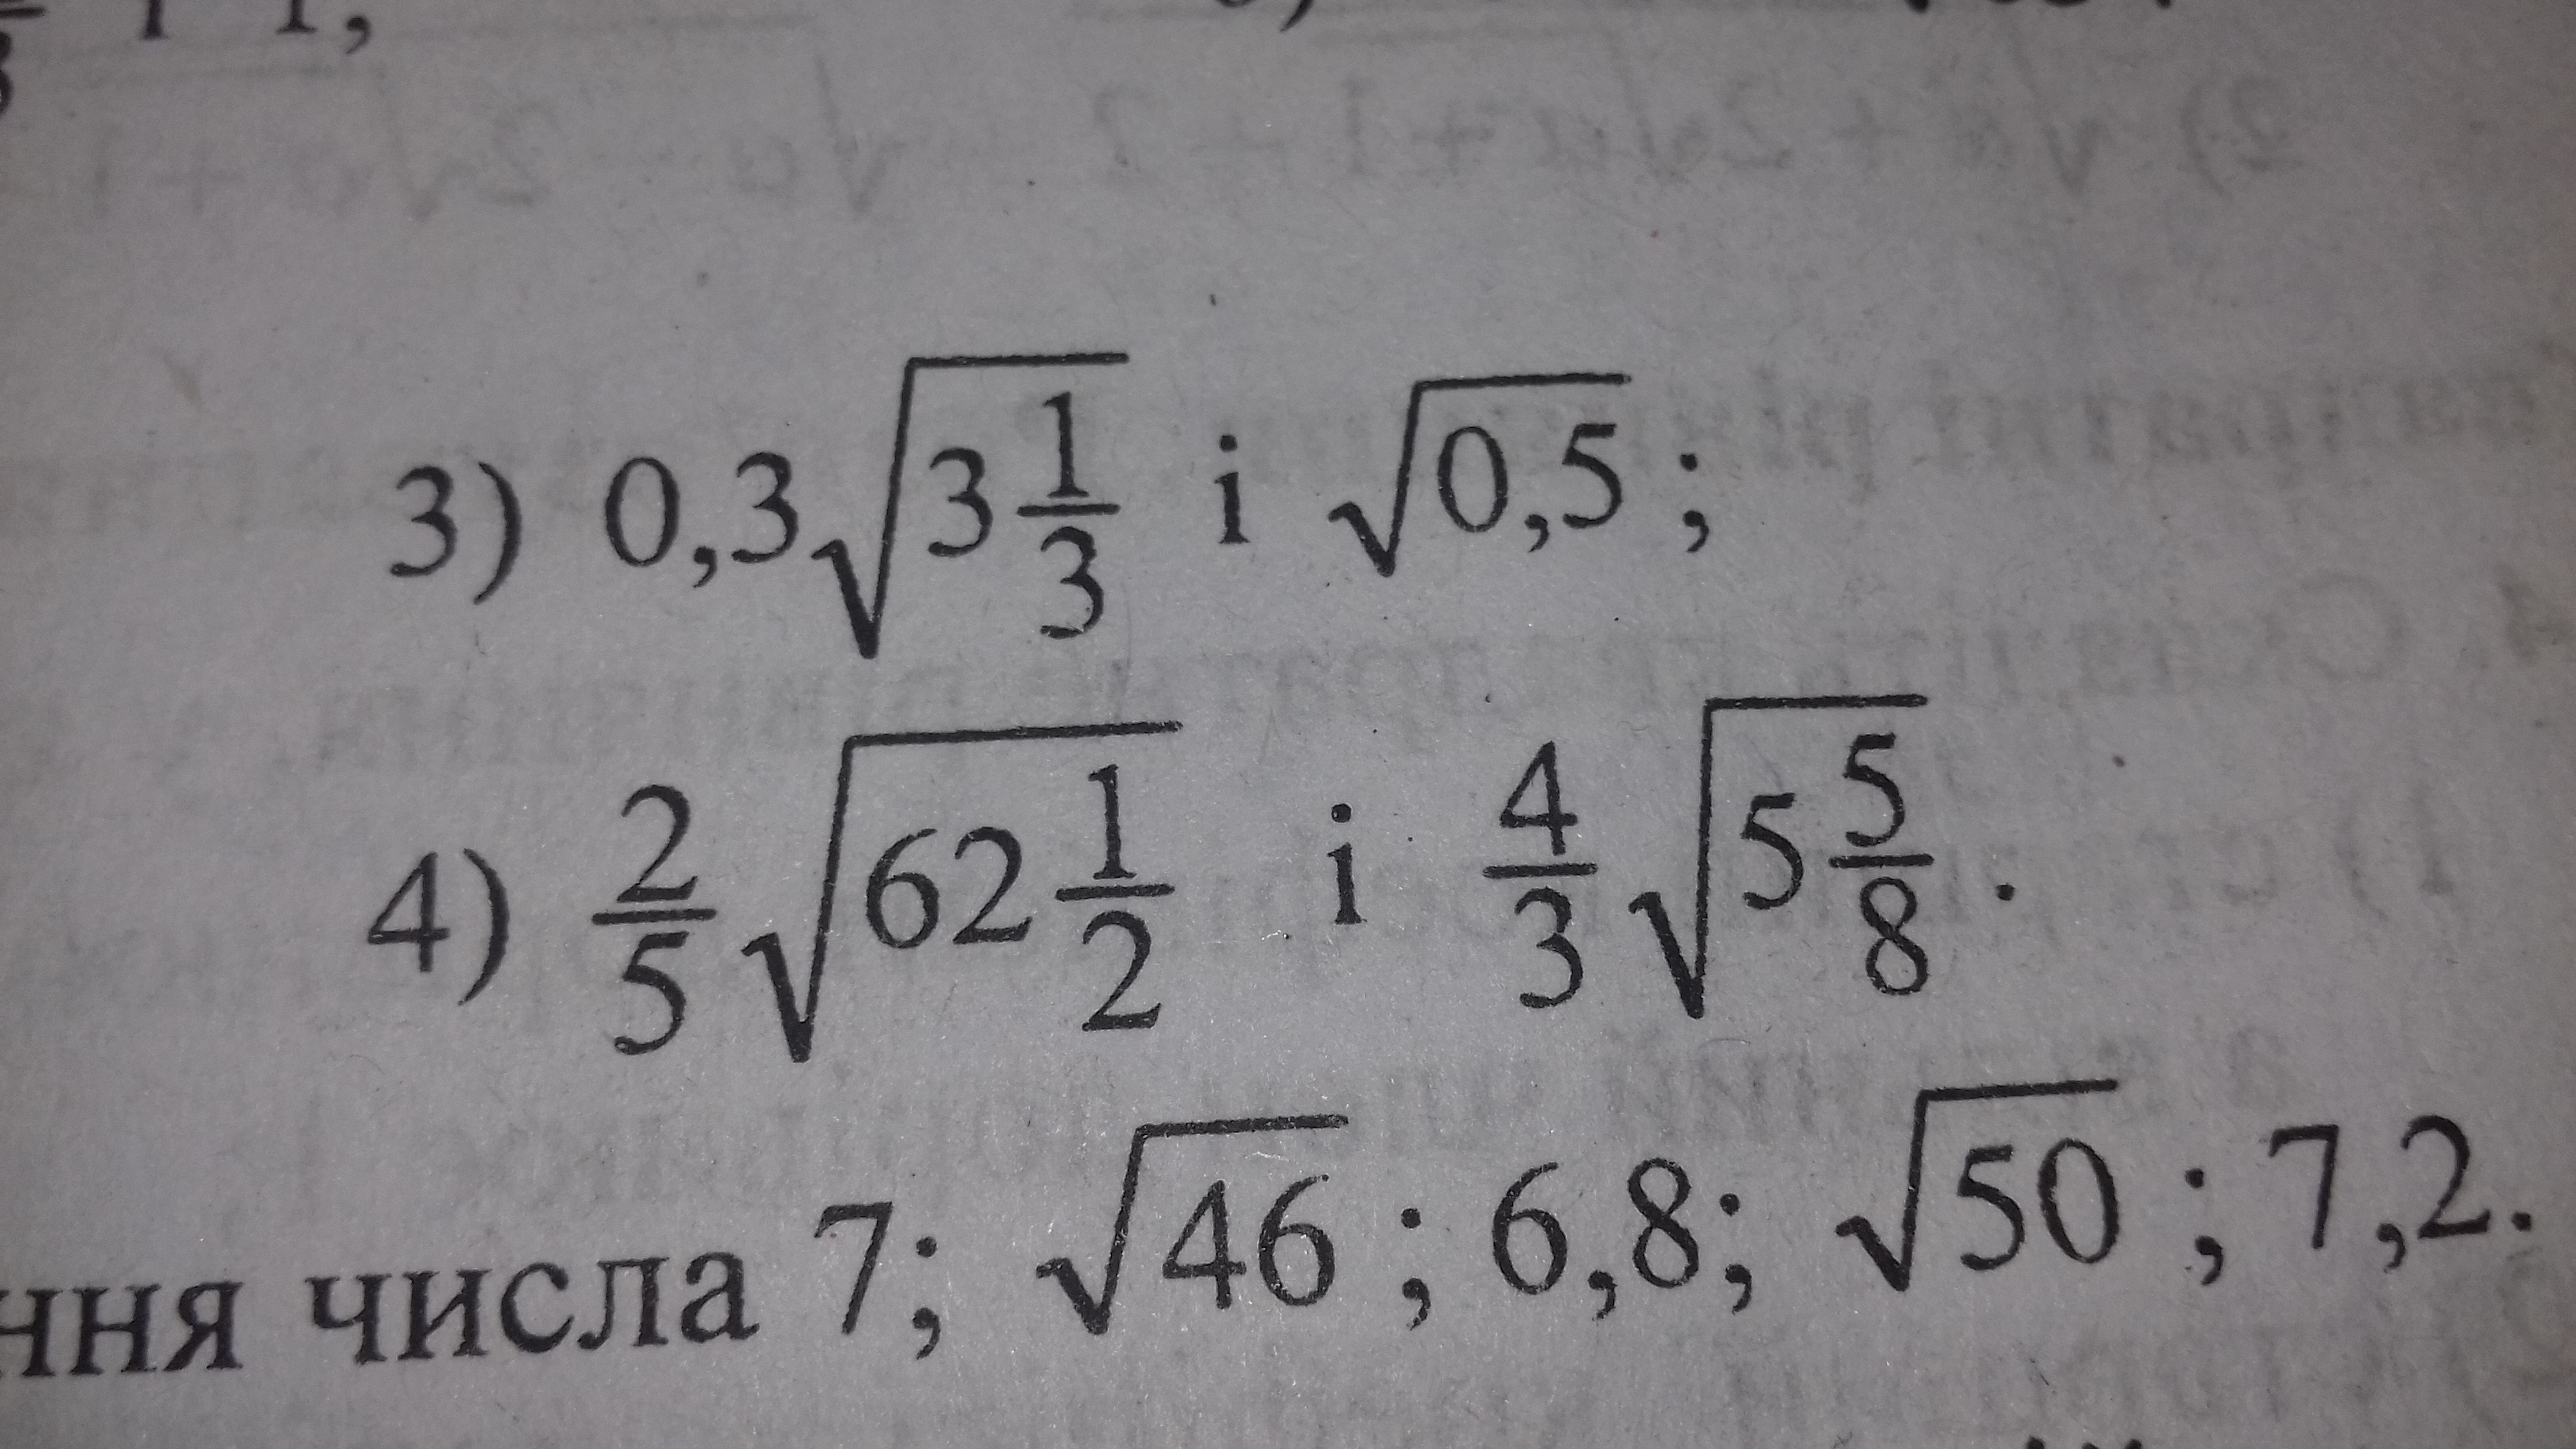 3) 0,3√(3 1/3) і √0,5 ;
4) 2/5 √(62 1/2) і 4/3 √(5 5/8) .
ння числа 7; √46 ; 6,8; √50 ; 7,2.